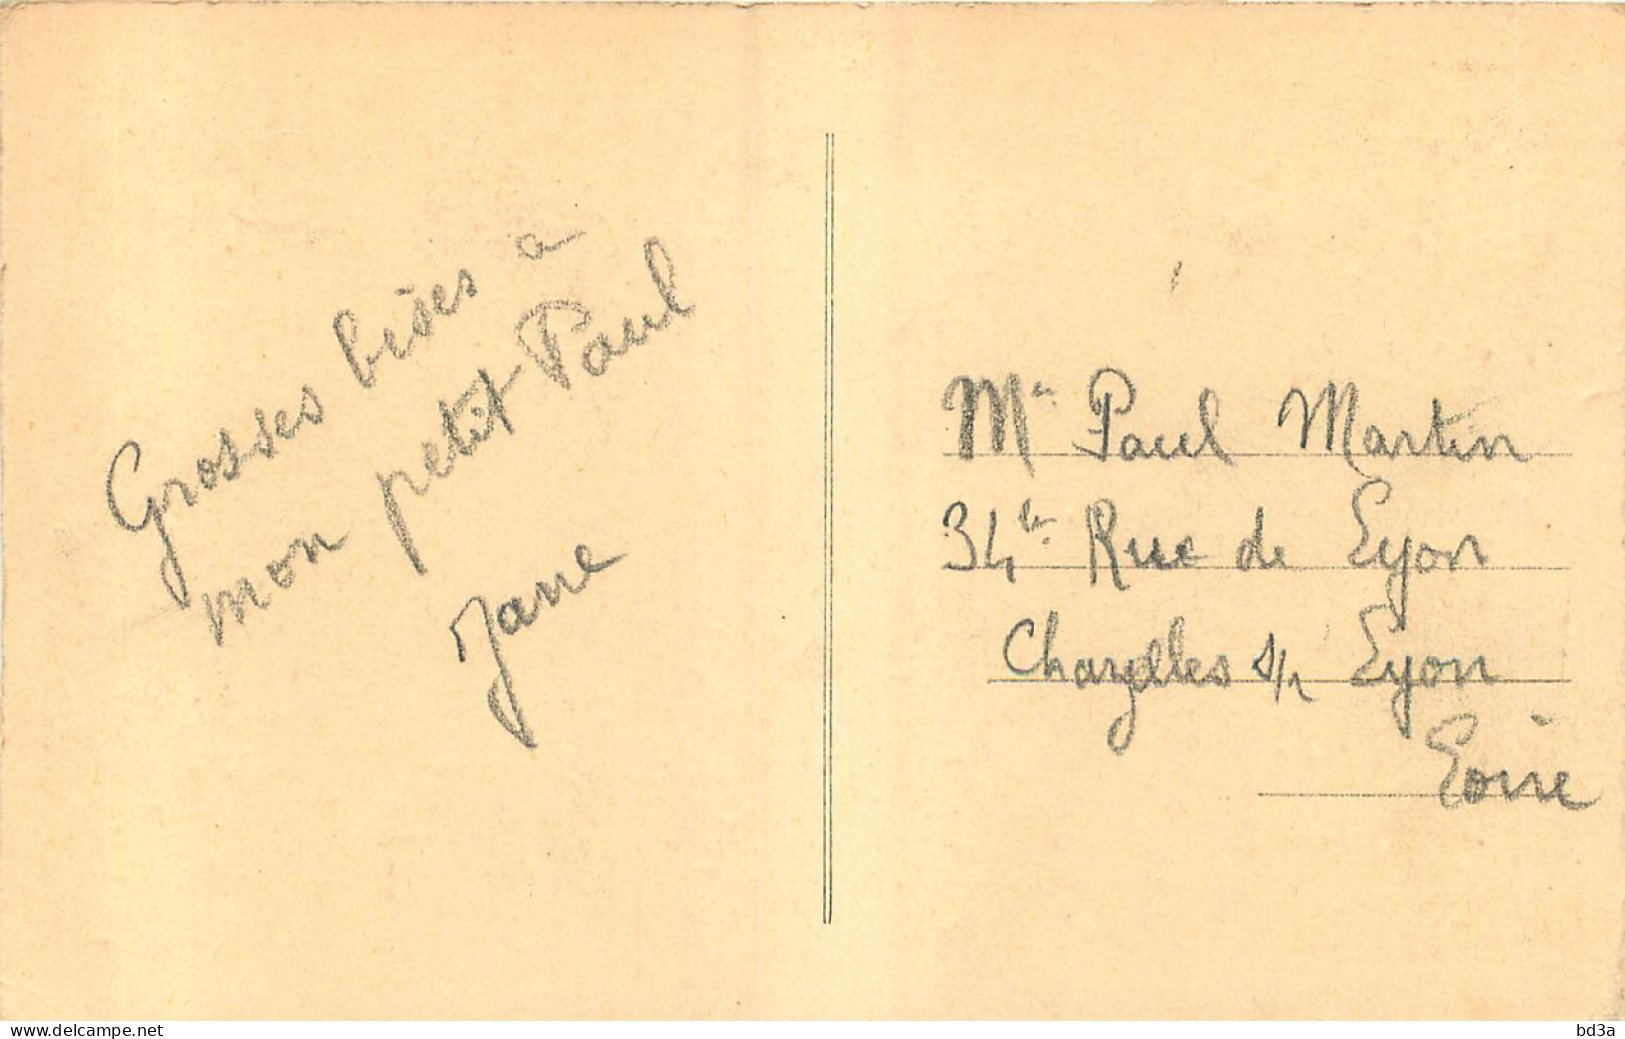 Grosses bises à
mon petit Paul
Jane
Mr Paul Martin
34 ter Rue de Lyon
Chazelles s/ Lyon
Loire
www.delcampe.net
bd3a